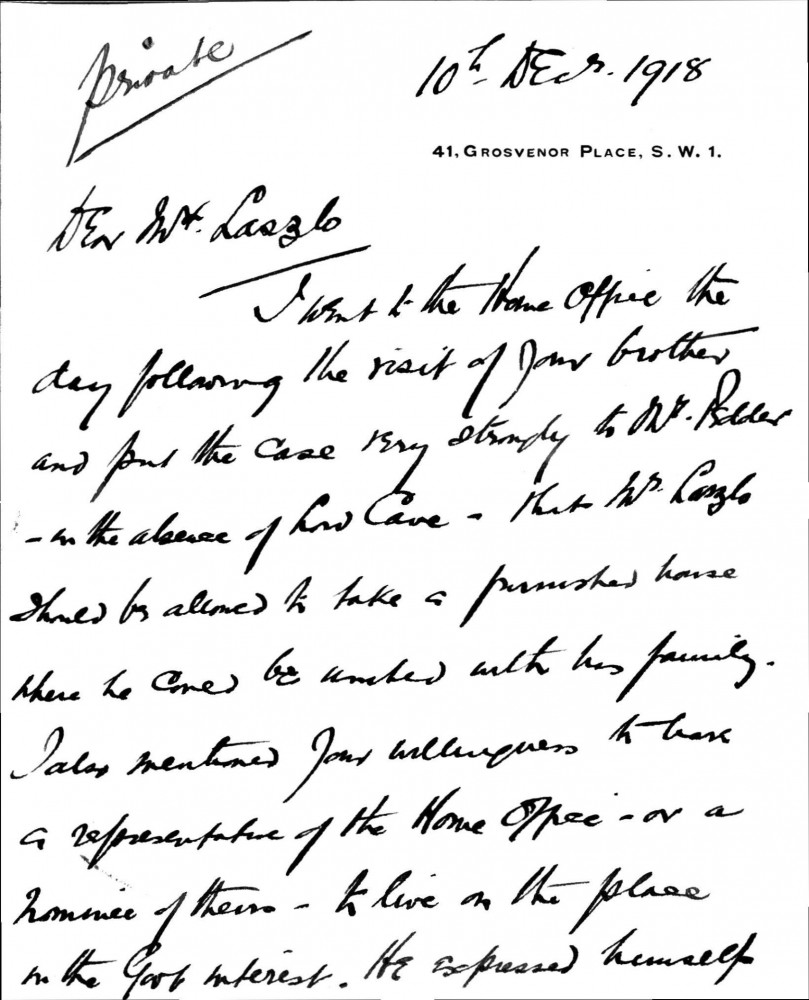 Private
10th Decr. 1918
41, GROSVENOR PLACE, S. W. 1.
Dear Mrs. Laszlo
I went to the Home Office the
day following the visit of your brother
and put the case very strongly to Mr. Pedder
- in the absence of Lord Cave - that Mr. Laszlo
should be allowed to take a furnished house
where he could be united with his family.
I also mentioned your willingness to have
a representative of the Home Office - or a
nominee of theirs - to live on the place
in the Govt interest. He expressed himself